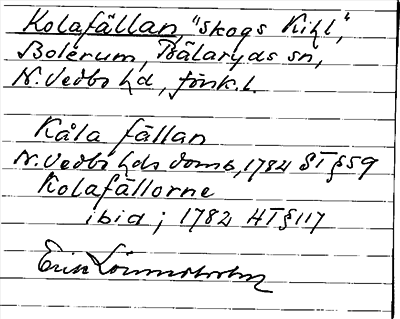 Kolafällan, "Skogs Kihl,"
Bolerum, Bälaryds sn,
N. Vedbo hd, Jönk. l.
Kåla fällan
N. Vedbo hds domb, 1782 ST § 59
Kolafällorne
ibid; 1782 HT § 117
Erik